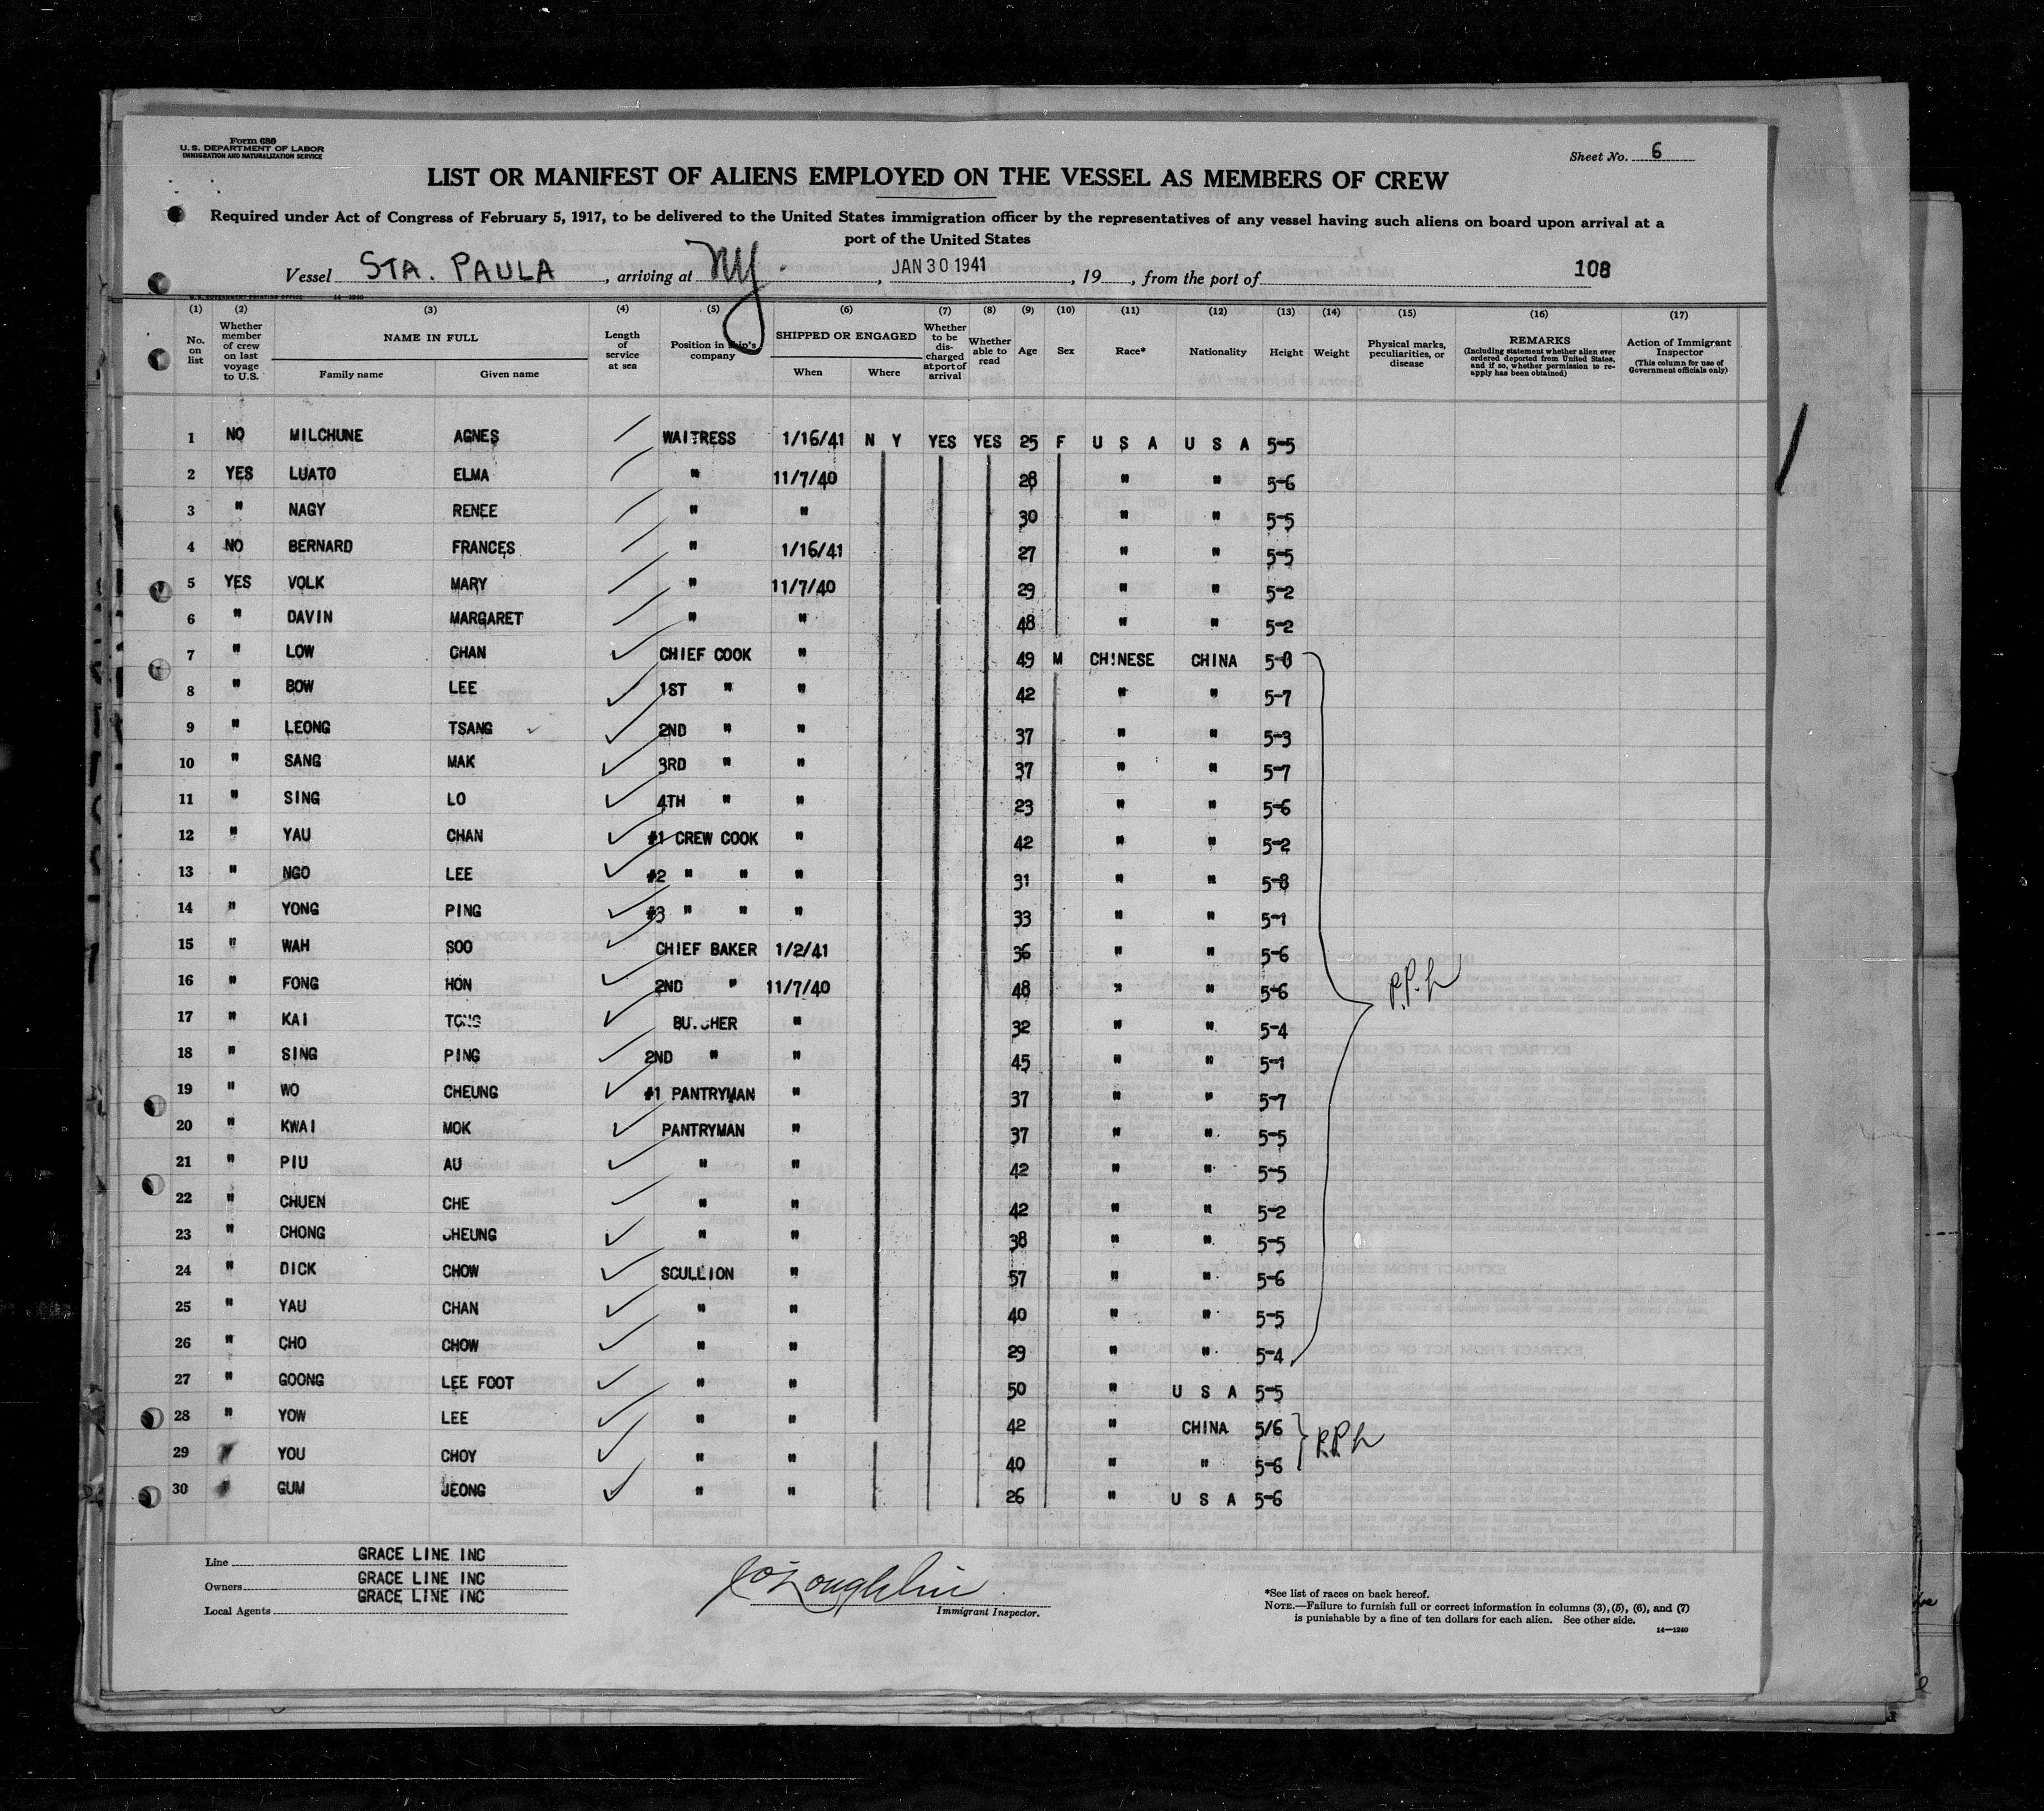 Form 680
U.S. DEPARTMENT OF LABOR
IMMIGRATION AND NATURALIZATION SERVICE
Sheet No. 6
LIST OR MANIFEST OF ALIENS EMPLOYED ON THE VESSEL AS MEMBERS OF CREW
Required under Act of Congress of February 5, 1917, to be delivered to the United States immigration officer by the representatives of any vessel having such aliens on board upon arrival at a
port of the United States
Vessel STA. PAULA, arriving at NY., JAN 30 1941, 19, from the port of 108
(1) (2) (3) (4) (5) (6) (7) (8) (9) (10) (11) (12) (13) (14) (15) (16) (17)
No. on list
Whether member of crew on last voyage to U.S.
NAME IN FULL
Family name
Given name
Length of service at sea
Position in ship's company
SHIPPED OR ENGAGED
When
Where
Whether to be discharged at port of arrival
Whether able to read
Age
Sex
Race*
Nationality
Height
Weight
Physical marks, peculiarities, or disease
REMARKS
(Including statement whether alien ever ordered deported from United States, and if so, whether permission to reapply has been obtained)
Action of Immigrant Inspector
(This column for use of Government officials only)
1 NO MILCHUNE AGNES WAITRESS 1/16/41 N Y YES YES 25 F U S A U S A 5-5
2 YES LUATO ELMA " 11/7/40 28 " " 5-6
3 " NAGY RENEE " " 30 " " 5-5
4 NO BERNARD FRANCES " 1/16/41 27 " " 5-5
5 YES VOLK MARY " 11/7/40 29 " " 5-2
6 " DAVIN MARGARET " " 48 " " 5-2
7 " LOW CHAN CHIEF COOK " 49 M CHINESE CHINA 5-8
8 " BOW LEE 1ST " " 42 " " 5-7
9 " LEONG TSANG 2ND " " 37 " " 5-3
10 " SANG MAK 3RD " " 37 " " 5-7
11 " SING LO 4TH " " 23 " " 5-6
12 " YAU CHAN #1 CREW COOK " 42 " " 5-2
13 " NGO LEE #2 " " " 31 " " 5-8
14 " YONG PING #3 " " " 33 " " 5-1
15 " WAH SOO CHIEF BAKER 1/2/41 36 " " 5-6
16 " FONG HON 2ND " 11/7/40 48 " " 5-6
17 " KAI TONG BUTCHER " 32 " " 5-4
18 " SING PING 2ND " " 45 " " 5-1
19 " WO CHEUNG #1 PANTRYMAN " 37 " " 5-7
20 " KWAI MOK PANTRYMAN " 37 " " 5-5
21 " PIU AU " " 42 " " 5-5
22 " CHUEN CHE " " 42 " " 5-2
23 " CHONG CHEUNG " " 38 " " 5-5
24 " DICK CHOW SCULLION " 57 " " 5-6
25 " YAU CHAN " " 40 " " 5-5
26 " CHO CHOW " " 29 " " 5-4
27 " GOONG LEE FOOT " " 50 " U S A 5-5
28 " YOW LEE " " 42 " CHINA 5/6
29 " YOU CHOY " " 40 " " 5-6
30 " GUM JEONG " " 26 " U S A 5-6
Line GRACE LINE INC
Owners GRACE LINE INC
Local Agents GRACE LINE INC
Immigrant Inspector.
*See list of races on back hereof.
NOTE.—Failure to furnish full or correct information in columns (3), (5), (6), and (7)
is punishable by a fine of ten dollars for each alien. See other side.
14—1240